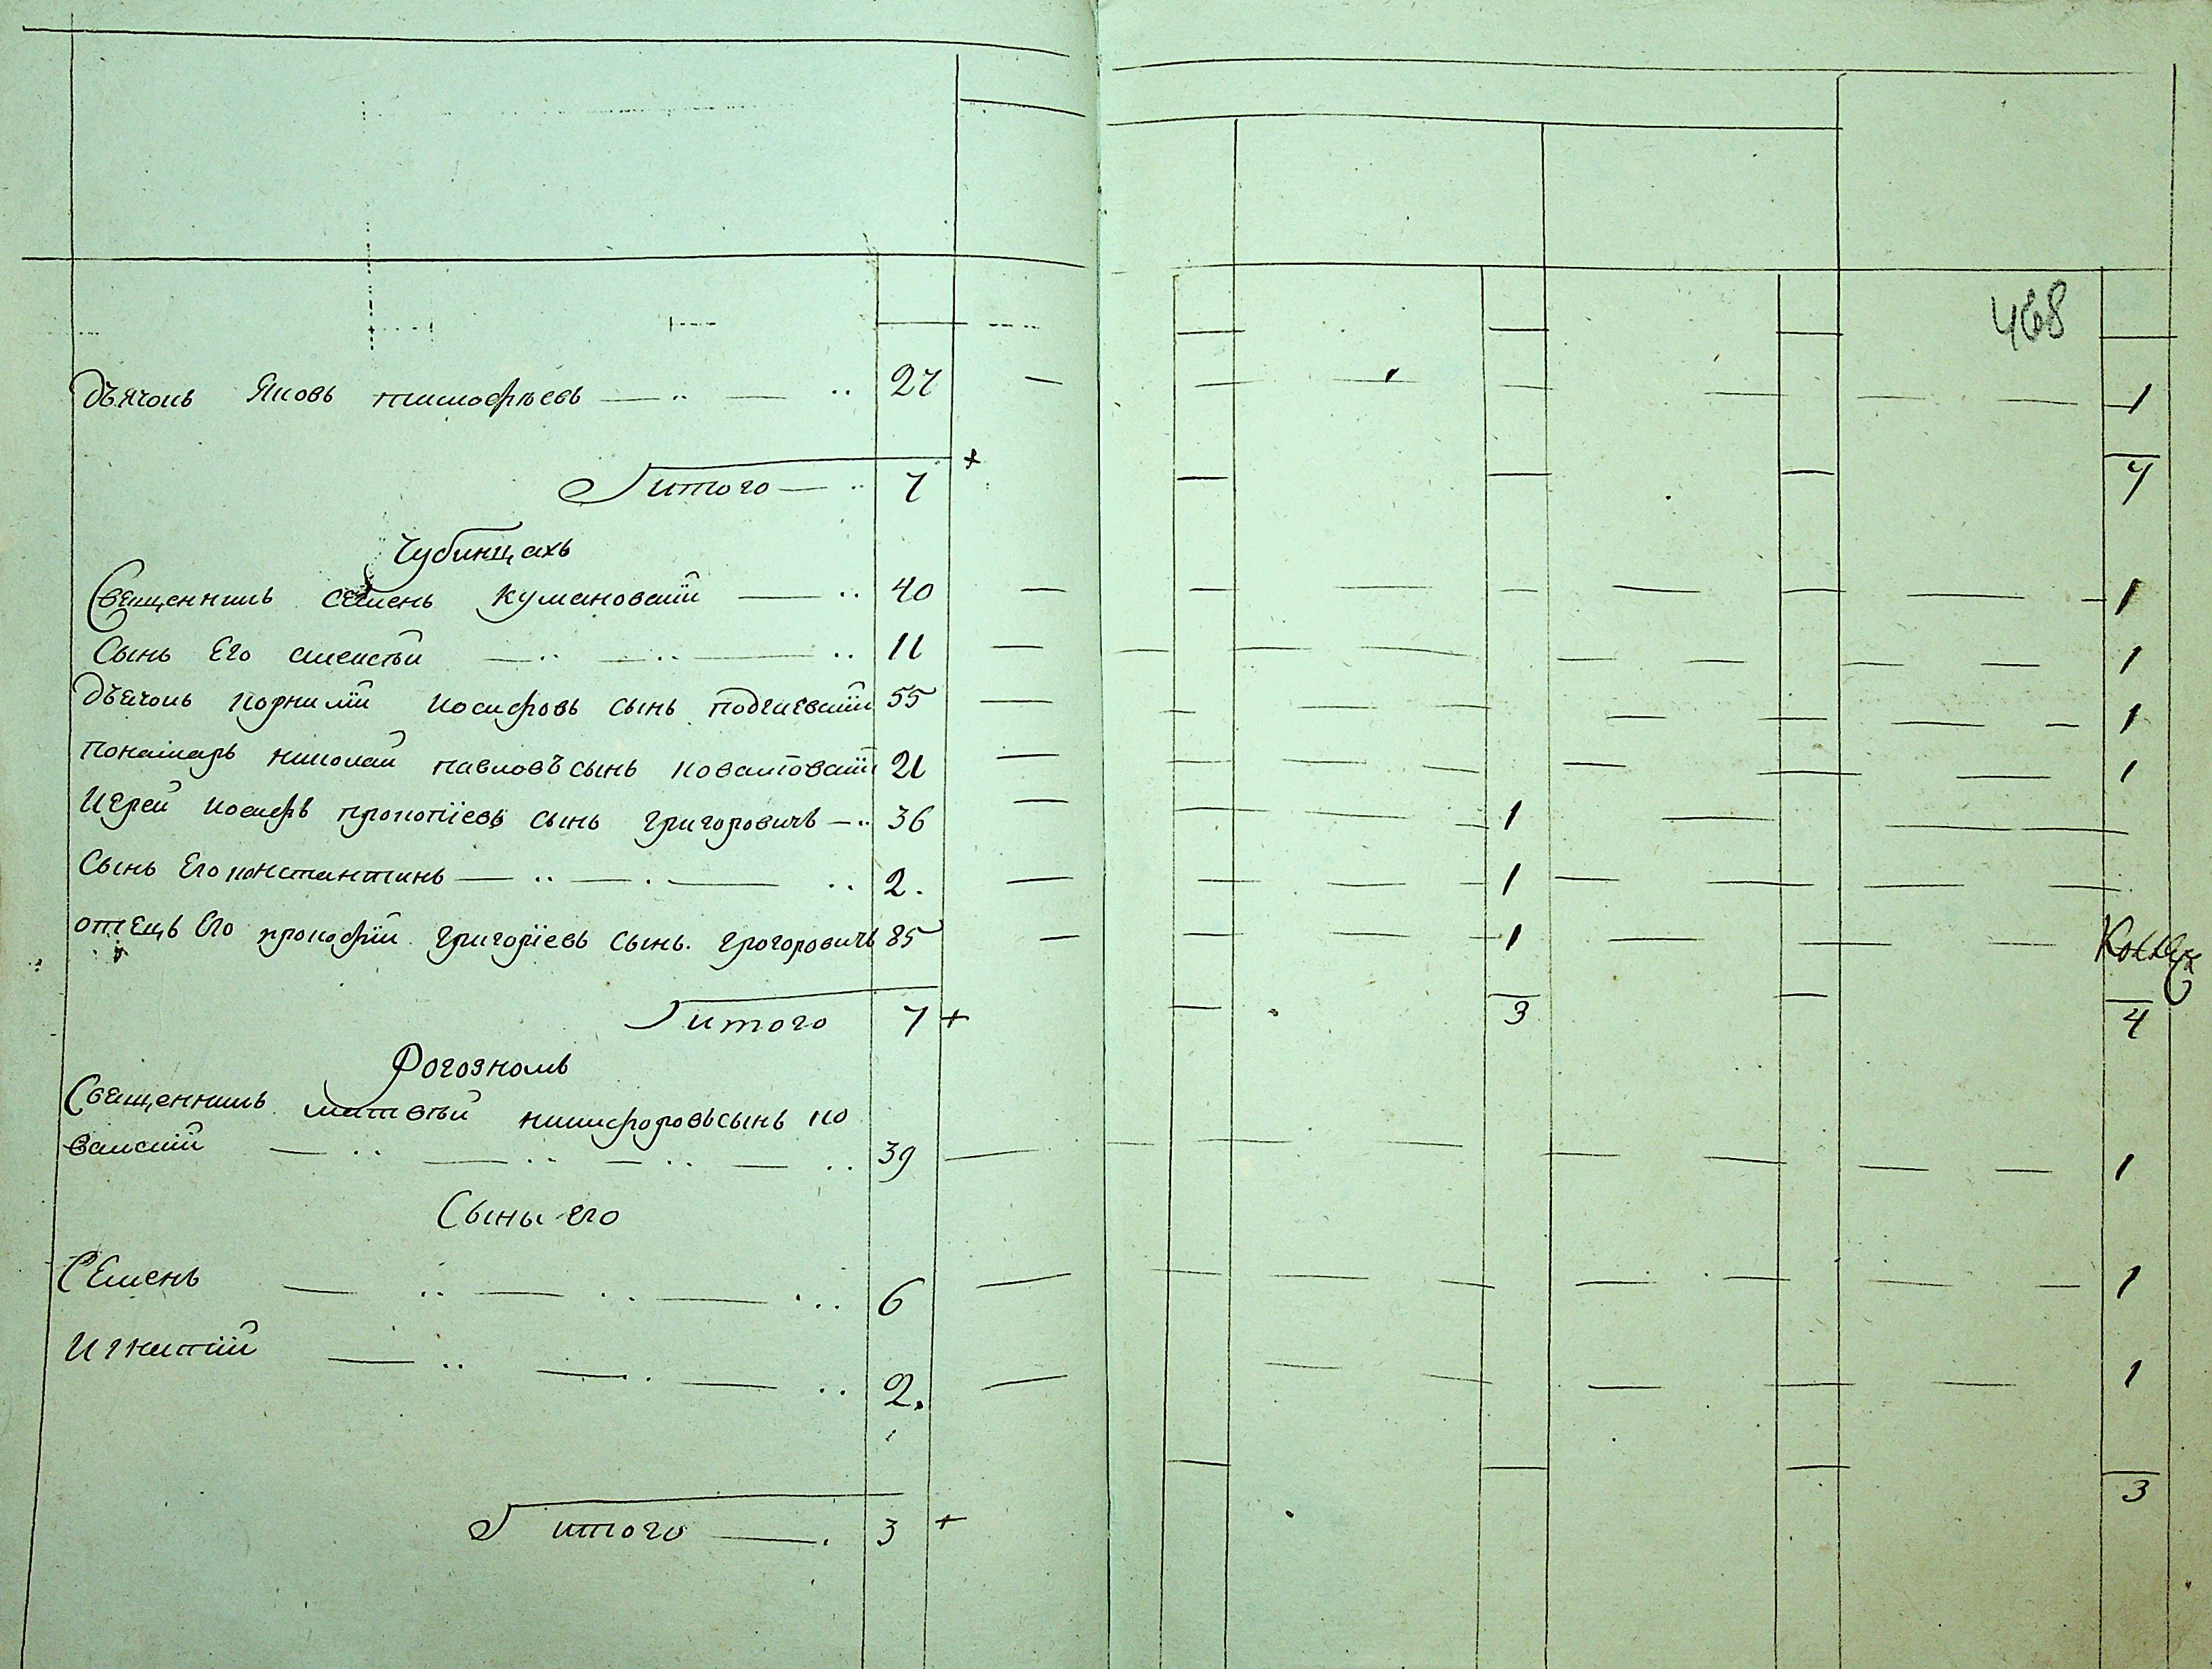 468
дьячокъ Яковъ тимофѣевъ 27 1
Итого 7 7
Чубинцахъ
Священникъ семенъ кумановскій 40 1
Сынъ Его алексѣй 11 1
дьячокъ корнилій иосифовъ сынъ 55 1
понамарь николай павловъ сынъ 21 1
Иерей иосифъ прокопіевъ сынъ григоровичъ 36 1
Сынъ Его константинъ 2. 1
отецъ Его прокофій григоріевъ сынъ. грогоровичъ 85 1
Итого 7 + 3 4
Рогозномъ
Священникъ матвѣй никифоровъ сынъ ко
вальскій 39 1
Сыны его
Семенъ 6 1
Игнатій 2. 1
Итого 3 + 3